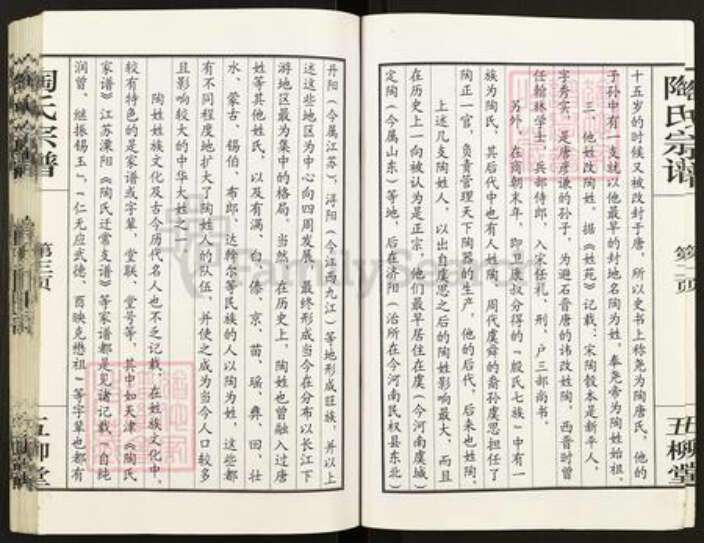 陶氏宗谱
第二页
五柳堂
十五岁的时候又被改封于唐，所以史书上称尧为陶唐氏，他的
子孙中有一支就以他最早的封地名陶为姓，奉尧帝为陶姓始祖。
三、他姓改陶姓。据《姓苑》记载：宋陶毂本是新平人，
字秀实，是唐彦谦的孙子，为避石晋唐的讳改姓陶，西晋时曾
任翰林学士、兵部侍郎，入宋任礼、刑、户三部尚书。
另外，在商朝末年，即卫康叔分得的“殷氏七族”中有一
族为陶氏，其后代中也有人姓陶。周代虞舜的裔孙虞思担任了
陶正一官，负责管理天下陶器的生产，他的后代，后来也姓陶。
上述几支陶姓人，以出自虞思之后的陶姓影响最大，而且
在历史上一向被认为是正宗。他们最早居住在虞（今河南虞城）
定陶（今属山东）等地，后在济阳（治所在今河南民权县东北）
丹阳（今属江苏），浔阳（今江西九江）等地形成旺族，并以上
述这些地区为中心向四周发展，最终形成当今在分布以长江下
游地区最为集中的格局。当然，在历史上，陶姓也曾融入过唐
姓等其他姓氏，以及有满、白、傣、京、苗、瑶、彝、回、壮
水、蒙古、锡伯、布郎、达斡尔等民族的人以陶为姓，这些都
有不同程度地扩大了陶姓人的队伍，并使之成为当今人口较多
且影响较大的中华大姓之一。
陶姓姓族文化及古今历代名人也不乏记载：在姓族文化中，
较有特色的是家谱或字辈，堂联、堂号等，其中如天津《陶氏
家谱》江苏溧阳《陶氏迁常支谱》等家谱都是见诸记载（自纯
润曾、继振锡玉）。“仁无应武德、酉映克懋祖”等字辈也都有
陶氏宗谱
第三页
五柳堂
FamilySearch